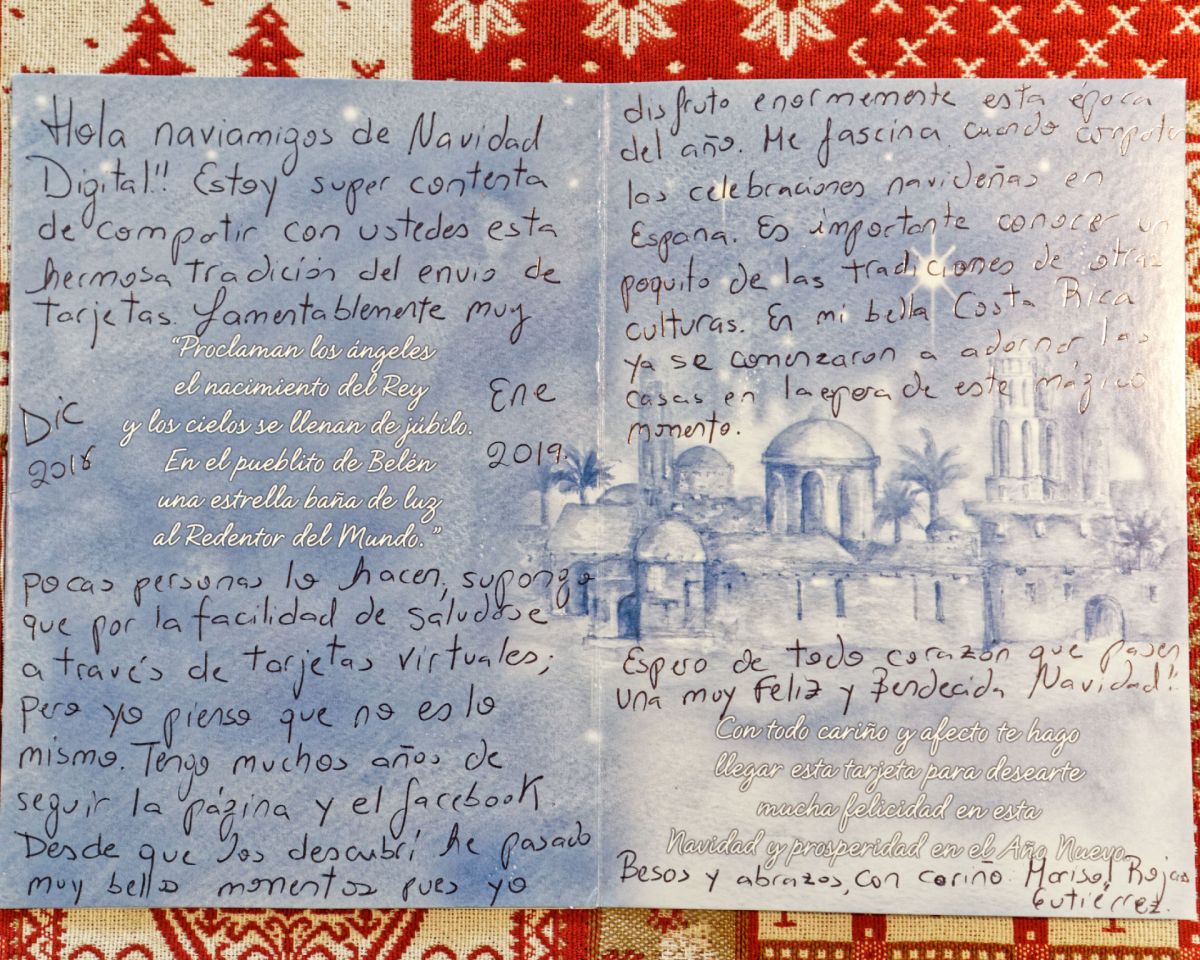 Hola naviamigos de Navidad
Digital!! Estoy super contenta
de compartir con ustedes esta
hermosa tradición del envio de
tarjetas. Lamentablemente muy
"Proclaman los ángeles
el nacimiento del Rey
y los cielos se llenan de júbilo.
En el pueblito de Belén
una estrella baña de luz
al Redentor del Mundo."
Dic
2018
Ene
2019.
pocas personas lo hacen, supongo
que por la facilidad de saludarse
a través de tarjetas virtuales;
pero yo pienso que no es lo
mismo. Tengo muchos años de
seguir la página y el facebook.
Desde que los descubrí he pasado
muy bellos momentos pues yo
disfruto enormemente esta época
del año. Me fascina cuando
las celebraciones navideñas en
España. Es importante conocer un
poquito de las tradiciones de otras
culturas. En mi bella Costa Rica
ya se comenzaron a adornar las
casas en la espera de este mágico
momento.
Espero de todo corazón que pasen
una muy Feliz y Bendecida Navidad!!
Con todo cariño y afecto te hago
llegar esta tarjeta para desearte
mucha felicidad en esta
Navidad y prosperidad en el Año Nuevo.
Besos y abrazos, con cariño. Marisol Rojas
Gutiérrez.